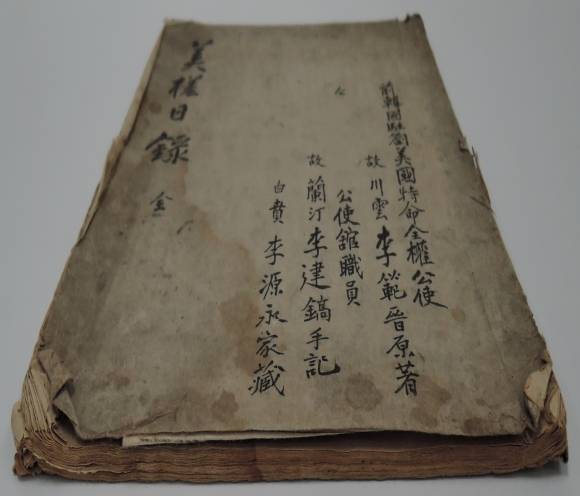 前韓國駐劄美國特命全權公使
故 川雲 李範晉 原著
公使館職員
故 蘭汀 李建鎬 手記
白賁 李源永 家藏
美槎日錄 全